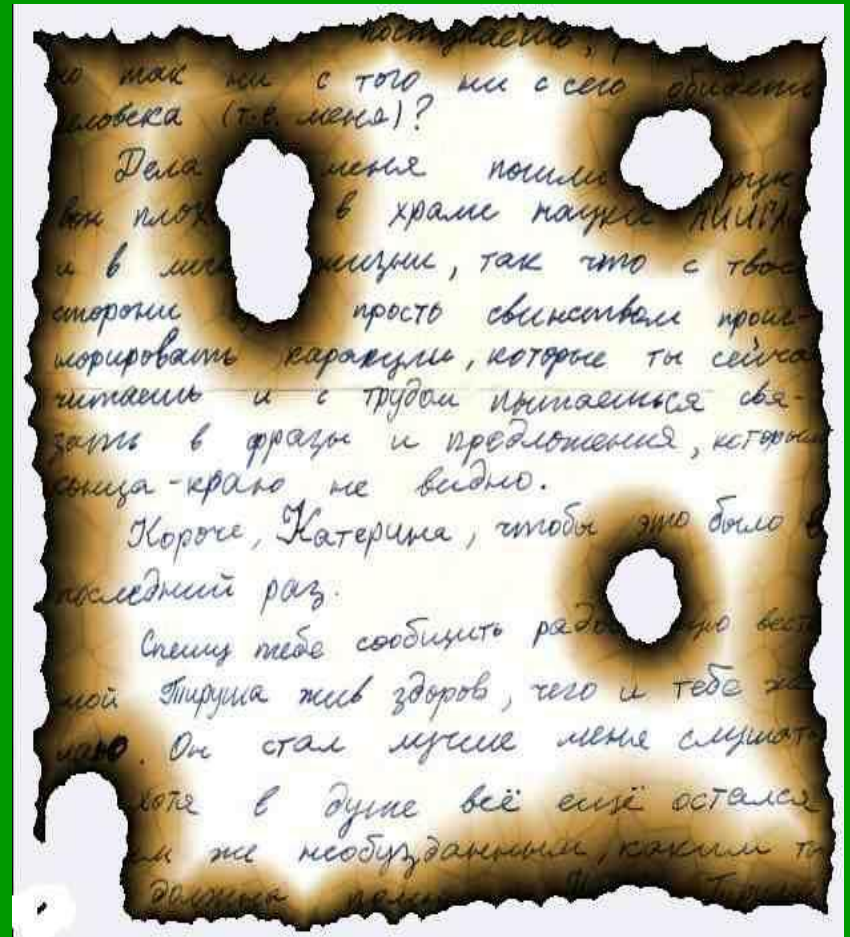 поступаешь,
но так ни с того ни с сего обидеть
человека (т.е. меня)?
Дела меня пошли
плох в храме науки
и в жизни, так что с твое
стороны просто свинством проиг-
норировать каракули, которые ты сейча
читаешь и с трудом пытаешься свя-
зать в фразы и предложения, которым
конца-краю не видно.
Короче, Катерина, чтобы это было в
последний раз.
Спешу тебе сообщить вест
мой Тируша жив здоров, чего и тебе же
лаю. Он стал лучше меня слушат
хотя в душе всё ещё остался
же необузданным, каким т
должна